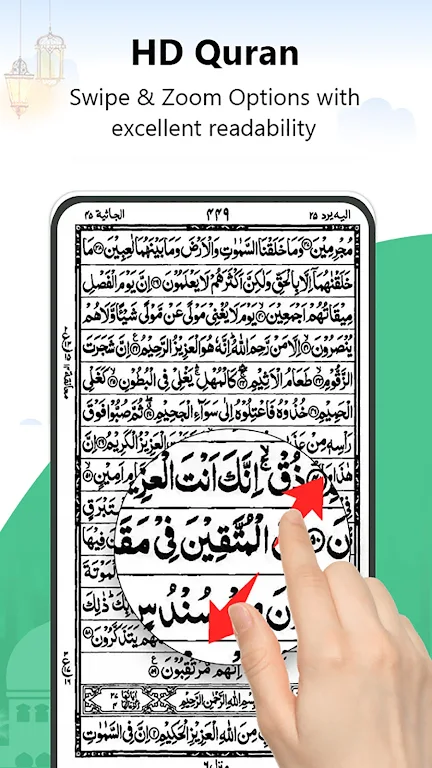 HD Quran
Swipe & Zoom Options with
excellent readability
اليه يرد ۲۵ ۴۴۹ الجاثية ۴۵
مُجْرِمِيْنَ ۝ وَمَا خَلَقْنَا السَّمٰوٰتِ وَالْاَرْضَ وَمَا بَيْنَهُمَا لٰعِبِيْنَ ۝ مَا
خَلَقْنٰهُمَاۤ اِلَّا بِالْحَقِّ وَلٰكِنَّ اَكْثَرَهُمْ لَا يَعْلَمُوْنَ ۝ اِنَّ يَوْمَ الْفَصْلِ
مِيْقَاتُهُمْ اَجْمَعِيْنَ ۝ يَوْمَ لَا يُغْنِيْ مَوْلًى عَنْ مَّوْلًى شَيْئًا وَّلَا هُمْ
يُنْصَرُوْنَ ۝ اِلَّا مَنْ رَّحِمَ اللّٰهُ اِنَّهٗ هُوَ الْعَزِيْزُ الرَّحِيْمُ ۝ اِنَّ شَجَرَتَ
الزَّقُّوْمِ ۝ طَعَامُ الْاَثِيْمِ ۝ كَالْمُهْلِ يَغْلِيْ فِي الْبُطُوْنِ ۝ كَغَلْيِ
الْحَمِيْمِ ۝ خُذُوْهُ فَاعْتِلُوْهُ اِلٰى سَوَآءِ الْجَحِيْمِ ۝ ثُمَّ صُبُّوْا فَوْقَ
رَاْسِهٖ مِنْ الْعَزِيْزُ الْكَرِيْمُ ۝ اِنَّ
هٰذَا
ذُقْ اِنَّكَ اَنْتَ الْعَزِيْ
الْمُتَّقِيْنَ فِيْ مَقَ
سُنْدُسٍ
فِيْهَا
الْمَوْتَةَ
ذٰلِكَ
يَتَذَكَّرُوْنَ
اِنَّهُمْ مُّرْتَقِبُوْنَ ۝
بِسْمِ اللّٰهِ الرَّحْمٰنِ الرَّحِيْمِ
مِنَ اللّٰهِ الْعَزِيْزِ الْحَكِيْمِ ۝ اِنَّ فِي السَّمٰوٰتِ